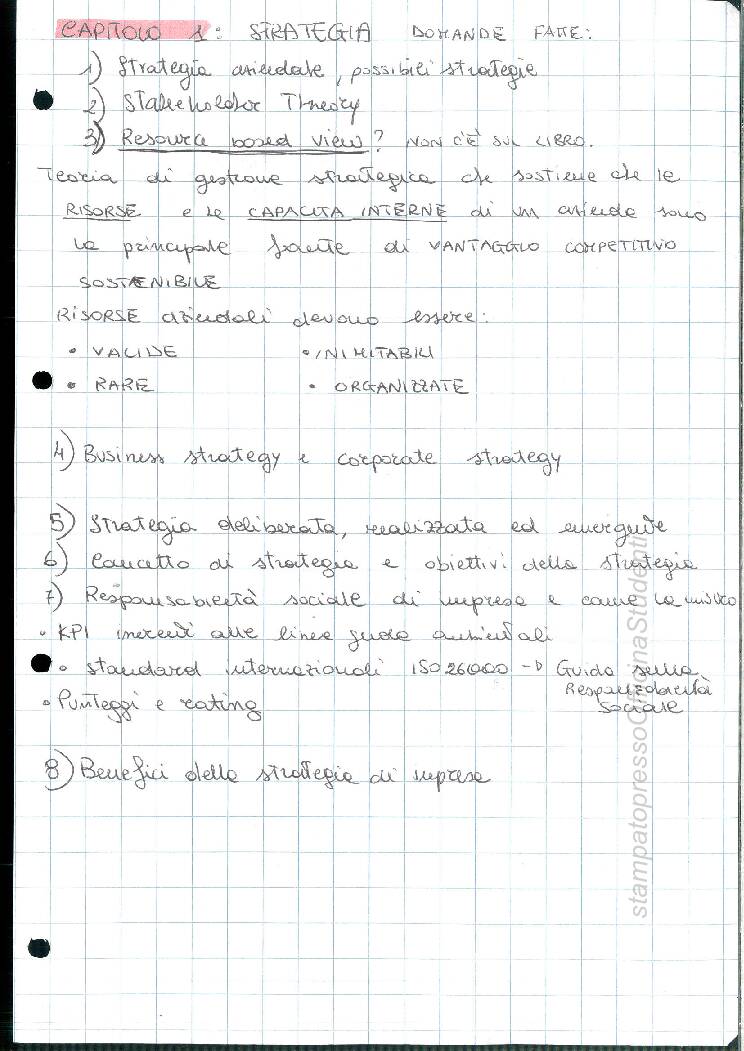 CAPITOLO 1: STRATEGIA DOMANDE FATTE:
1) Strategia aziendale, possibili strategie
2) Stakeholder Theory
3) Resource based view? NON C'È SUL LIBRO.
Teoria di gestione strategica che sostiene che le
RISORSE e le CAPACITÀ INTERNE di un azienda sono
la principale fonte di VANTAGGIO COMPETITIVO
SOSTENIBILE
RISORSE aziendali devono essere:
• VALIDE • INIMITABILI
• RARE • ORGANIZZATE
4) Business strategy e corporate strategy
5) Strategia deliberata, realizzata ed emergente
6) Concetto di strategia e obiettivi della strategia
7) Responsabilità sociale di impresa e come la misuro
• KPI inerenti alle linee guida ambientali
• standard internazionali ISO 26000 → Guida sulla
Responsabilità
Sociale
• Punteggi e rating
8) Benefici della strategia di impresa
stampatopressoOfficinaStudenti